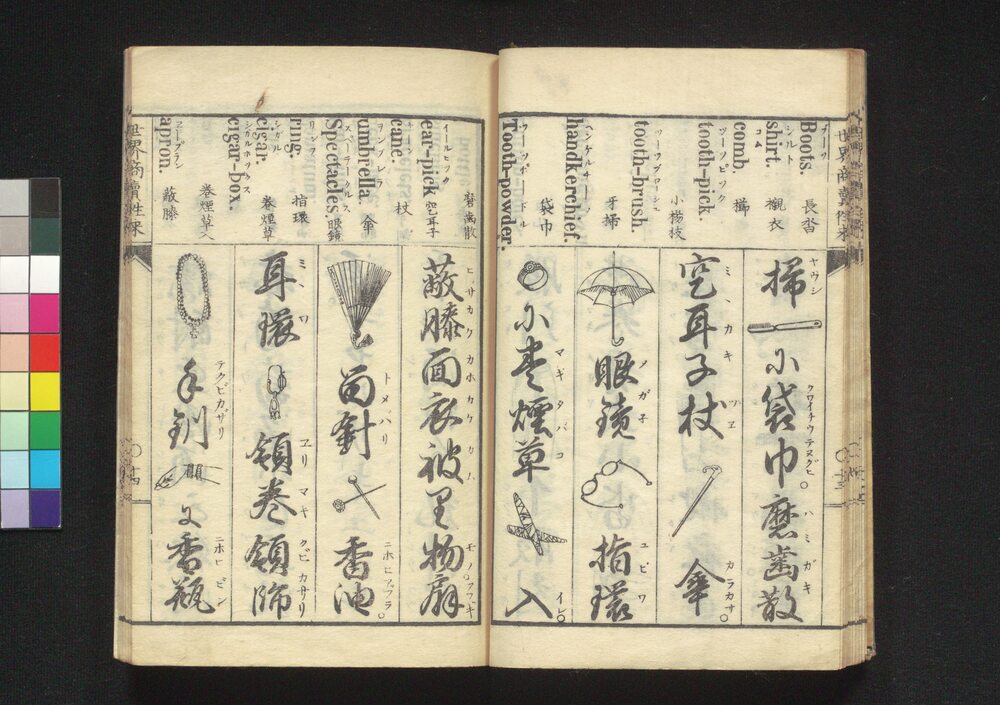 Boots. 長沓
シルト
shirt. 襯衣
コム
comb.
ツーツピック
tooth-pick. 小楊枝
ツーツブローシ
tooth-brush. 牙掃
ヘンケルチーフ
handkerchief. 袋巾
ツーツポードル
Tooth-powder.
ヤウジ
掃
クワイチウテヌグヒ。
小袋巾
ハミガキ
磨歯散
ミヽカキ
空耳子
ツエ
杖
カラカサ。
傘
メガネ
眼鏡
ユビワ
指環
マキタバコ
小巻煙草
イレ。
入
磨歯散
イールピック
ear-pick 空耳子
cane. 杖
ヲンブレラ
umbrella. 傘
スペーテークルス
Spectacles 眼鏡
リンフ
ring. 指環
シガル
cigar. 巻煙草
シガルボックス
cigar-box. 巻煙草入
apron. 蔽膝
ヒザカケ
蔽膝
カホカケ
面衣
カハ
被里
モノ。
物
アフギ
扇
トメバリ
留針
ニホヒアブラ。
香油
ミヽワ
耳環
ヱリマキ
領巻
クビカザリ
領飾
テクビカザリ
手釧
ニホヒビン
香瓶